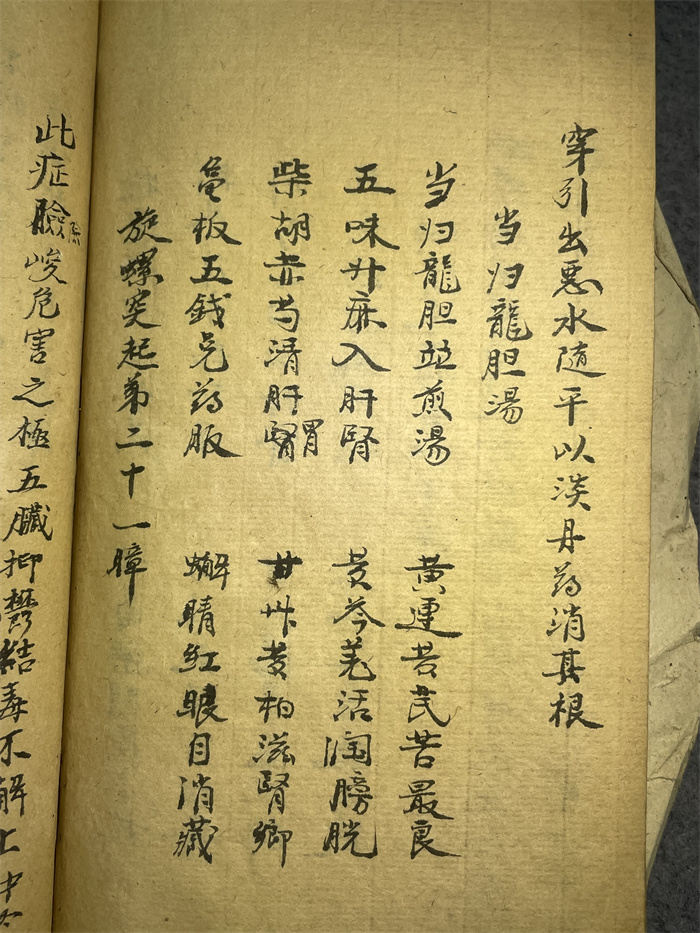 穿引出惡水随平以淡丹药消其根
当归龍胆湯
当归龍胆並煎湯 黄連芪苦最良
五味升麻入肝腎 黄芩羗活洵膀胱
柴胡赤芍清肝腎胃 甘艸黄柏滋腎鄉
板五錢兑药服 蠏睛紅眼自消藏
旋螺突起第二十一障
此症臉險峻危害之極五臟抑鬱結毒不解上冲